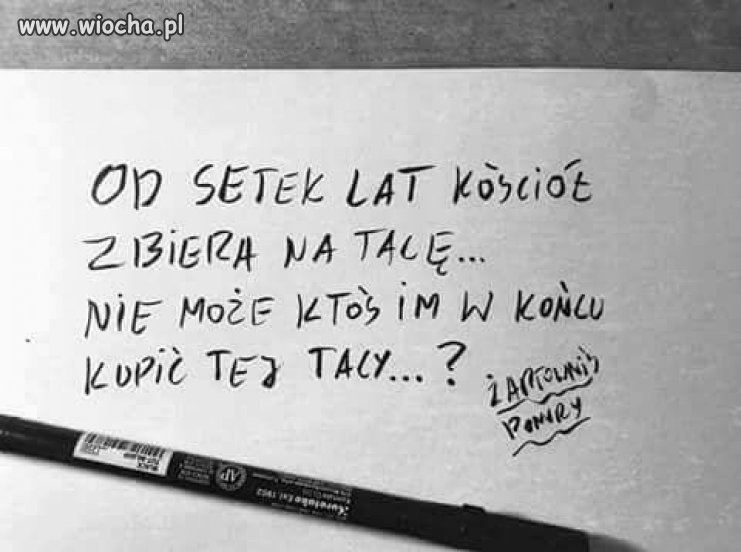 www.wiocha.pl
OD SETEK LAT KOŚCIÓŁ
ZBIERA NA TACĘ...
NIE MOŻE KTOŚ IM W KOŃCU
KUPIĆ TEJ TACY...?
ŻARTOWNIŚ
PONURY
BLACK
AP
Kuretake Est. 1902